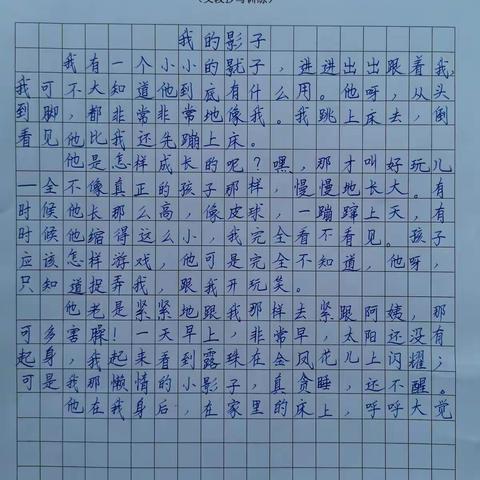 （文段抄写训练）
我的影子
我有一个小小的影子，进进出出跟着我，
我可不大知道他到底有什么用。他呀，从头
到脚，都非常非常地像我。我跳上床去，倒
看见他比我还先蹦上床。
他是怎样成长的呢？嘿，那才叫好玩儿
一全不像真正的孩子那样，慢慢地长大。有
时候他长那么高，像皮球，一蹦蹿上天，有
时候他缩得这么小，我完全看不看见。孩子
应该怎样游戏，他可是完全不知道，他呀，
只知道捉弄我，跟我开玩笑。
他老是紧紧地跟我那样去紧跟阿姨，那
可多害臊！一天早上，非常早，太阳还没有
起身，我起来看到露珠在金凤花儿上闪耀；
可是我那懒惰的小影子，真贪睡，还不醒。
他在我身后，在家里的床上，呼呼大觉